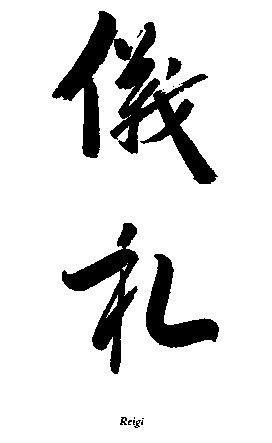 儀
礼
Reigi